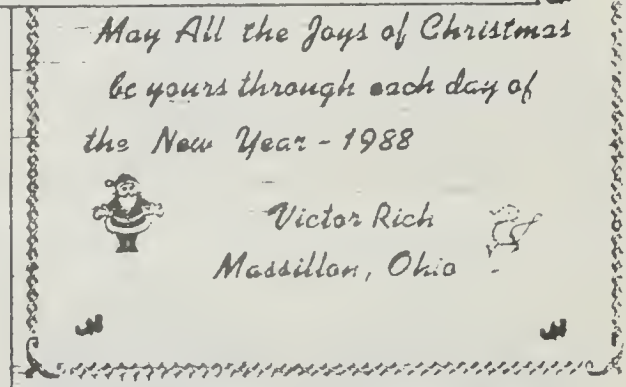 May All the Joys of Christmas
be yours through each day of
the New Year - 1988
Victor Rich
Massillon, Ohio